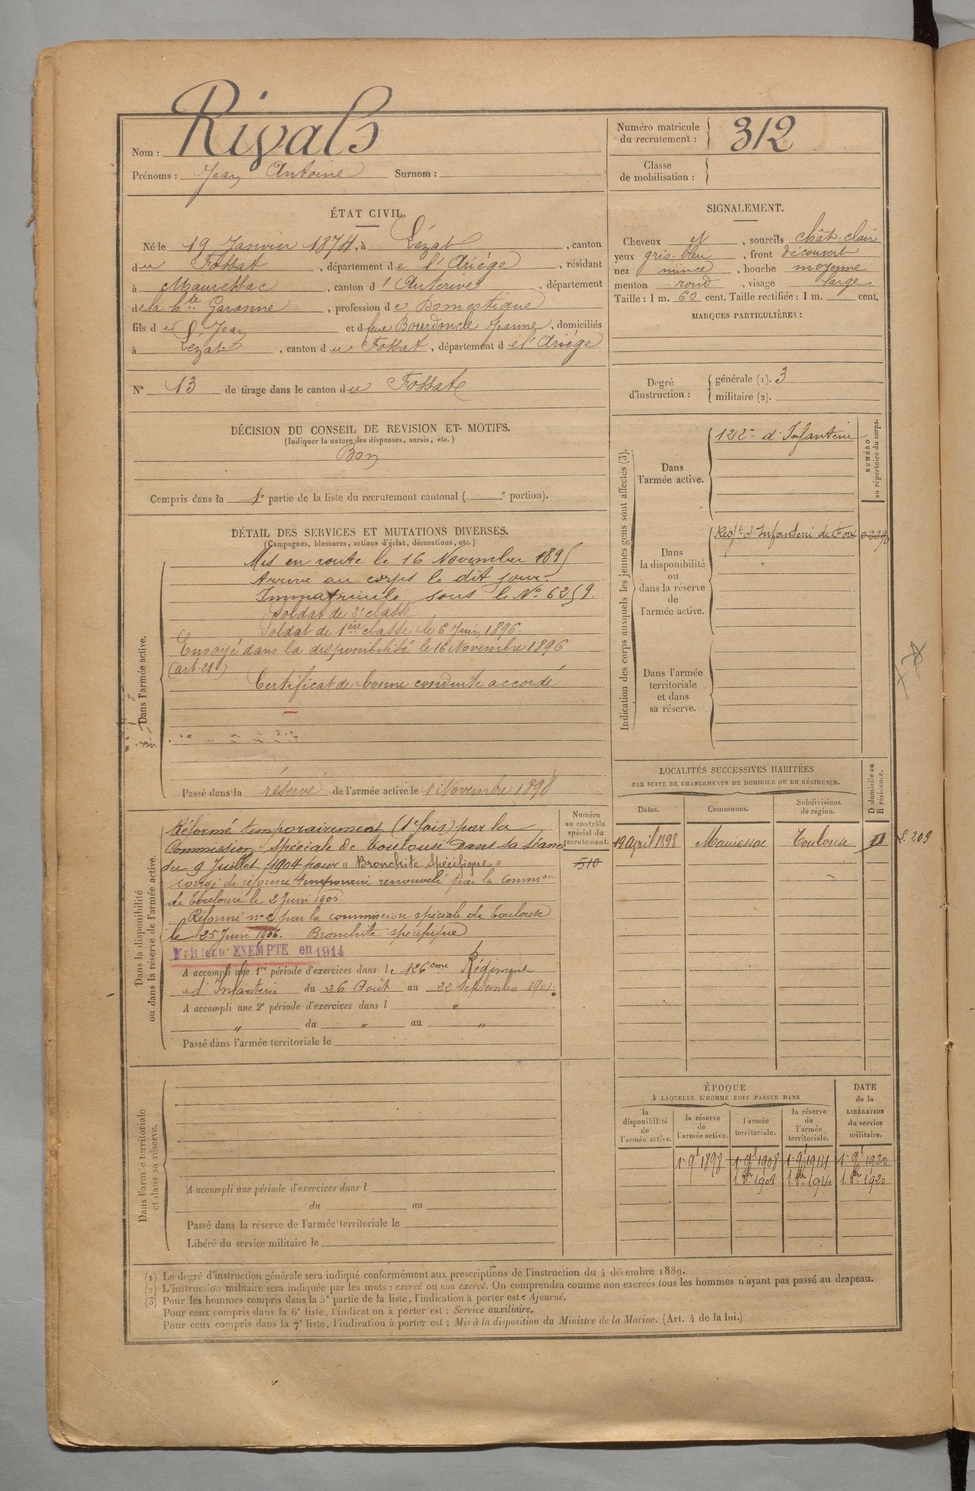 Nom : Rivals
Prénoms : Jean Antoine Surnom :
Numéro matricule du recrutement : 312
Classe de mobilisation :
ÉTAT CIVIL.
Né le 19 Janvier 1874, à Lézat, canton
du Fossat, département de l'Ariège, résidant
à Mauressac, canton d'Auterive, département
de la Hte Garonne, profession de Domestique
fils de Jean et de feue Bourdoncle Jeanne, domiciliés
à Lézat, canton du Fossat, département de l'Ariège
N° 13 de tirage dans le canton du Fossat
SIGNALEMENT.
Cheveux N, sourcils chât-clair
yeux gris-bleu, front découvert
nez mince, bouche moyenne
menton rond, visage large
Taille : 1 m. 60 cent. Taille rectifiée : 1 m. cent.
MARQUES PARTICULIÈRES :
Degré d'instruction : générale (1). 3
militaire (2).
DÉCISION DU CONSEIL DE REVISION ET MOTIFS.
(Indiquer la nature des dispenses, sursis, etc.)
Bon
Compris dans la 1e partie de la liste du recrutement cantonal ( e portion).
DÉTAIL DES SERVICES ET MUTATIONS DIVERSES.
(Campagnes, blessures, actions d'éclat, décorations, etc.)
Dans l'armée active.
Mis en route le 16 Novembre 1895
Arrivé au corps le dit jour.
Immatriculé sous le N° 6259.
Soldat de 2e classe
Soldat de 1ère classe le 6 Juin 1896.
Envoyé dans la disponibilité le 16 Novembre 1896
(art. 21.)
Certificat de bonne conduite accordé
Passé dans la réserve de l'armée active le 1 Novembre 1898
Indication des corps auxquels les jeunes gens sont affectés (3).
NUMÉRO au répertoire du corps.
Dans l'armée active.
122e d'Infanterie
Dans la disponibilité ou dans la réserve de l'armée active.
Régt d'Infanterie de Foix
Dans l'armée territoriale et dans sa réserve.
Dans la disponibilité ou dans la réserve de l'armée active.
Numéro au contrôle spécial du recrutement.
510
Réformé temporairement (1e fois) par la
Commission spéciale de Toulouse dans sa séance
du 9 Juillet 1904 pour "Bronchite Spécifique"
congé de réforme temporaire renouvelé par la common
de Toulouse le 2 Juin 1905
Réformé n° 2 par la commission spéciale de Toulouse
le 25 Juin 1906. Bronchite spécifique
Maintenu EXEMPTÉ en 1914
A accompli une 1re période d'exercices dans le 126eme Régiment
d'Infanterie du 26 Août au 22 Septembre 1901.
A accompli une 2e période d'exercices dans l "
" du " au "
Passé dans l'armée territoriale le
LOCALITÉS SUCCESSIVES HABITÉES
PAR SUITE DE CHANGEMENTS DE DOMICILE OU DE RÉSIDENCE.
Dates. Communes. Subdivisions de région. D domicile ou R résidence.
19 avril 1898 Mauressac Toulouse D
Dans l'armée territoriale et dans sa réserve.
A accompli une période d'exercices dans l
du au
Passé dans la réserve de l'armée territoriale le
Libéré du service militaire le
ÉPOQUE
À LAQUELLE L'HOMME DOIT PASSER DANS
la disponibilité de l'armée active. la réserve de l'armée active. l'armée territoriale. la réserve de l'armée territoriale.
DATE de la LIBÉRATION du service militaire.
1 9bre 1898 1 9bre 1908 1 9bre 1914 1 9bre 1920
(1) Le degré d'instruction générale sera indiqué conformément aux prescriptions de l'instruction du 4 décembre 1889.
(2) L'instruction militaire sera indiquée par les mots : exercé ou non exercé. On comprendra comme non exercés tous les hommes n'ayant pas passé au drapeau.
(3) Pour les hommes compris dans la 5e partie de la liste, l'indication à porter est : Ajourné.
Pour ceux compris dans la 6e liste, l'indication à porter est : Service auxiliaire.
Pour ceux compris dans la 7e liste, l'indication à porter est : Mis à la disposition du Ministre de la Marine. (Art. 4 de la loi.)